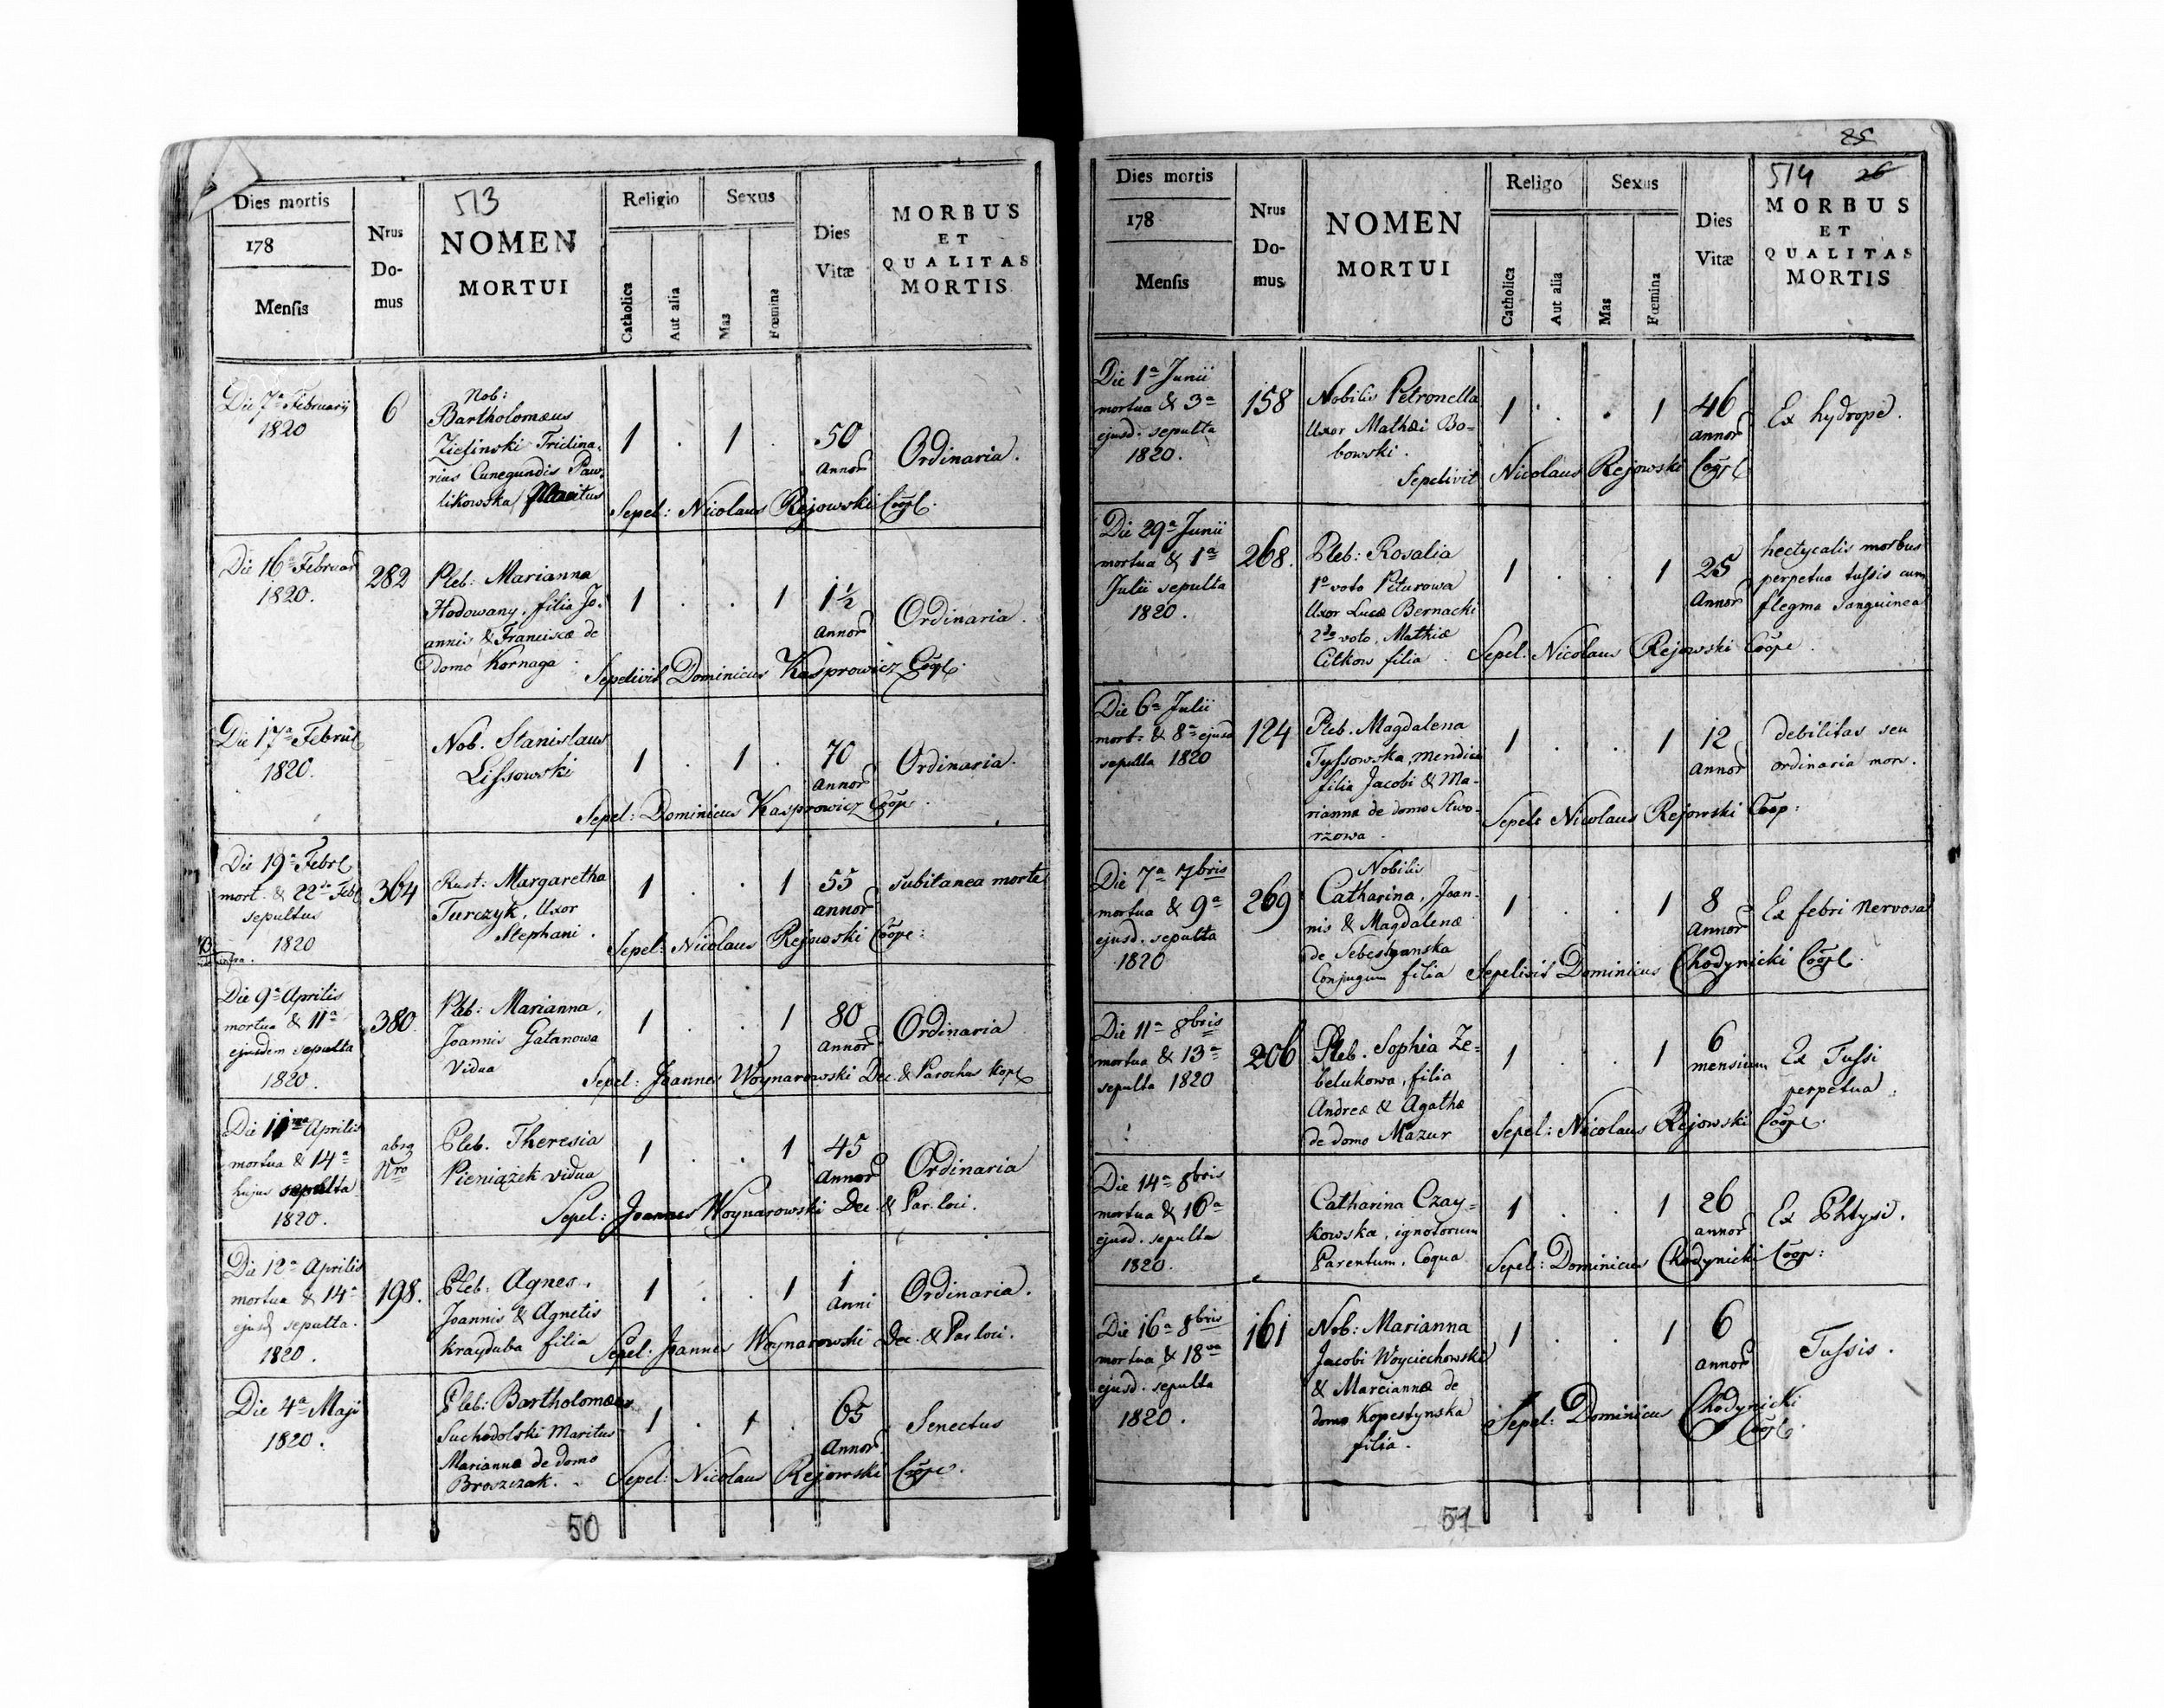 513
Dies mortis
178
Mensis
Nrus Do-mus
NOMEN
MORTUI
Religio
Catholica
Aut alia
Sexus
Mas
Fœmina
Dies Vitæ
MORBUS
ET
QUALITAS
MORTIS
Die 7a Februarij
1820
6
Nob:
Bartholomæus
Zielinski Triclina-
rius Cunegundis Paw-
likowska Maritus
1 . 1 .
50
Annor
Ordinaria.
Sepel: Nicolaus Rejowski Coopl.
Die 16a Februar
1820.
282
Pleb: Marianna
Hodowany, filia Jo-
annis & Franciscæ de
Domo Kornaga.
1 . . 1
1½
Annor
Ordinaria.
Sepelivit Dominicus Kasprowicz Coopl.
Die 17a Februar
1820.
Nob. Stanislaus
Lissowski
1 . 1 .
70
Annor
Ordinaria.
Sepel: Dominicus Kasprowicz Coop.
Die 19a Febrl
mort. & 22da Febl
sepultus
1820
infra.
364
Rust: Margaretha
Turczyk, Uxor
Stephani.
1 . . 1
55
annor
subitanea morte
Sepel: Nicolaus Rejowski Coope:
Die 9a Aprilis
mortua & 11a
ejusdem sepulta
1820.
380.
Pleb: Marianna,
Joannis Gatanowa
Vidua
1 . . 1
80
Annor
Ordinaria
Sepel: Joannes Woynarowski Dec. & Parochus
Die 11ma Aprilis
mortua & 14a
hujus sepulta
1820.
absq
Nro
Pleb. Theresia
Pieniązek vidua
1 . . 1
45
Annor
Ordinaria
Sepel: Joannes Woynarowski Dec. & Par. loci.
Die 12a Aprilis
mortua & 14a
ejusd sepulta.
1820.
198.
Pleb: Agnes,
Joannis & Agnetis
Krayduba filia
1 . . 1
1
Anni
Ordinaria.
Sepel: Joannes Woynarowski Dec. & Par loci.
Die 4a Maji
1820.
Pleb: Bartholomæus
Suchodolski Maritus
Mariannæ de domo
Broszczak.
1 . 1 .
65
Annor.
Senectus
Sepel: Nicolaus Rejowski Coope.
50
25
514 26
Dies mortis
178
Mensis
Nrus Do-mus
NOMEN
MORTUI
Religo
Catholica
Aut alia
Sexus
Mas
Fœmina
Dies Vitæ
MORBUS
ET
QUALITAS
MORTIS
Die 1a Junii
mortua & 3a
ejusd. sepulta
1820.
158
Nobilis Petronella
Uxor Mathæi Bo-
bowski.
1 . . 1
46
annor
Ex hydrope.
Sepelivit Nicolaus Rejowski Coopl
Die 29a Junii
mortua & 1a
Julii sepulta
1820.
268.
Pleb: Rosalia
1o voto Piturowa
Uxor Lucæ Bernacki
2do voto, Mathiæ
Citkow filia.
1 . . 1
25
Annor
hectycalis morbus
perpetua tussis cum
flegma sanguinea
Sepel: Nicolaus Rejowski Coope.
Die 6a Julii
mort. & 8a ejusd
sepulta 1820
124
Pleb. Magdalena
Tyssowska, mendici
filia Jacobi & Ma-
rianna de domo Stwo-
rzowa.
1 . . 1
12
Annor
debilitas seu
ordinaria mors.
Sepel: Nicolaus Rejowski Coop:
Die 7a 7bris
mortua & 9a
ejusd. sepulta
1820
269
Nobilis
Catharina, Joan-
nis & Magdalenæ
de Sebestyanska
Conjugum filia
1 . . 1
8
Annor
Ex febri nervosa
Sepelivit Dominicus Chodynicki Coopl.
Die 11a 8bris
mortua & 13a
sepulta 1820
206
Pleb. Sophia Ze-
belukowa, filia
Andreæ & Agathæ
de domo Mazur
1 . . 1
6
mensium
Ex Tussi
perpetua.
Sepel: Nicolaus Rejowski Coope.
Die 14a 8bris
mortua & 16a
ejusd. sepulta
1820.
Catharina Czay-
kowska, ignotorum
Parentum, Coqua
1 . . 1
26
annor
Ex Phtysi.
Sepel: Dominicus Chodynicki Coop:
Die 16a 8bris
mortua & 18va
ejusd. sepulta
1820.
161
Nob: Marianna
Jacobi Woyciechowski
& Mariannæ de
domo Kopestynska
filia.
1 . . 1
6
Annor
Tussis.
Sepel: Dominicus Chodynicki
Coopl.
51